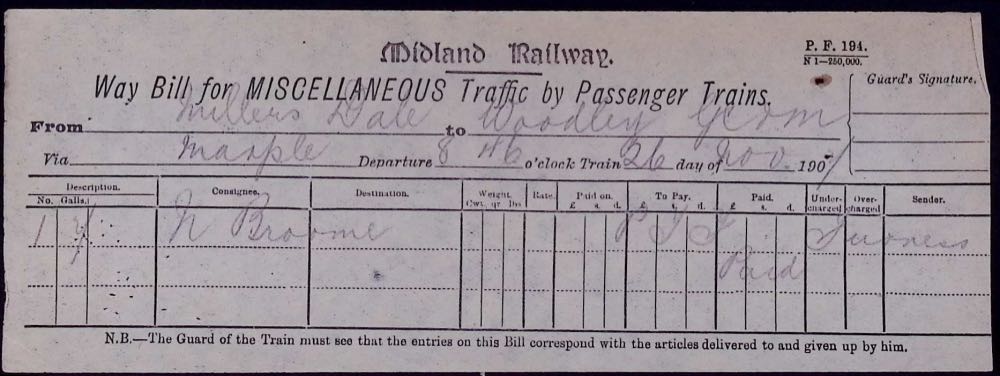 Midland Railway.
P. F. 194.
N 1—250,000.
Way Bill for MISCELLANEOUS Traffic by Passenger Trains.
Guard's Signature.
From Millers Dale to Woodley
Via Marple Departure 8 46 o'clock Train 26 day of Nov. 1907
Description. Consignee. Destination. Weight. Rate. Paid on. To Pay. Paid. Under-charged Over-charged Sender.
No. Galls. Cwt. qr lbs £ s. d. £ s. d. £ s. d.
1 N Broome Furness
Paid
N.B.—The Guard of the Train must see that the entries on this Bill correspond with the articles delivered to and given up by him.